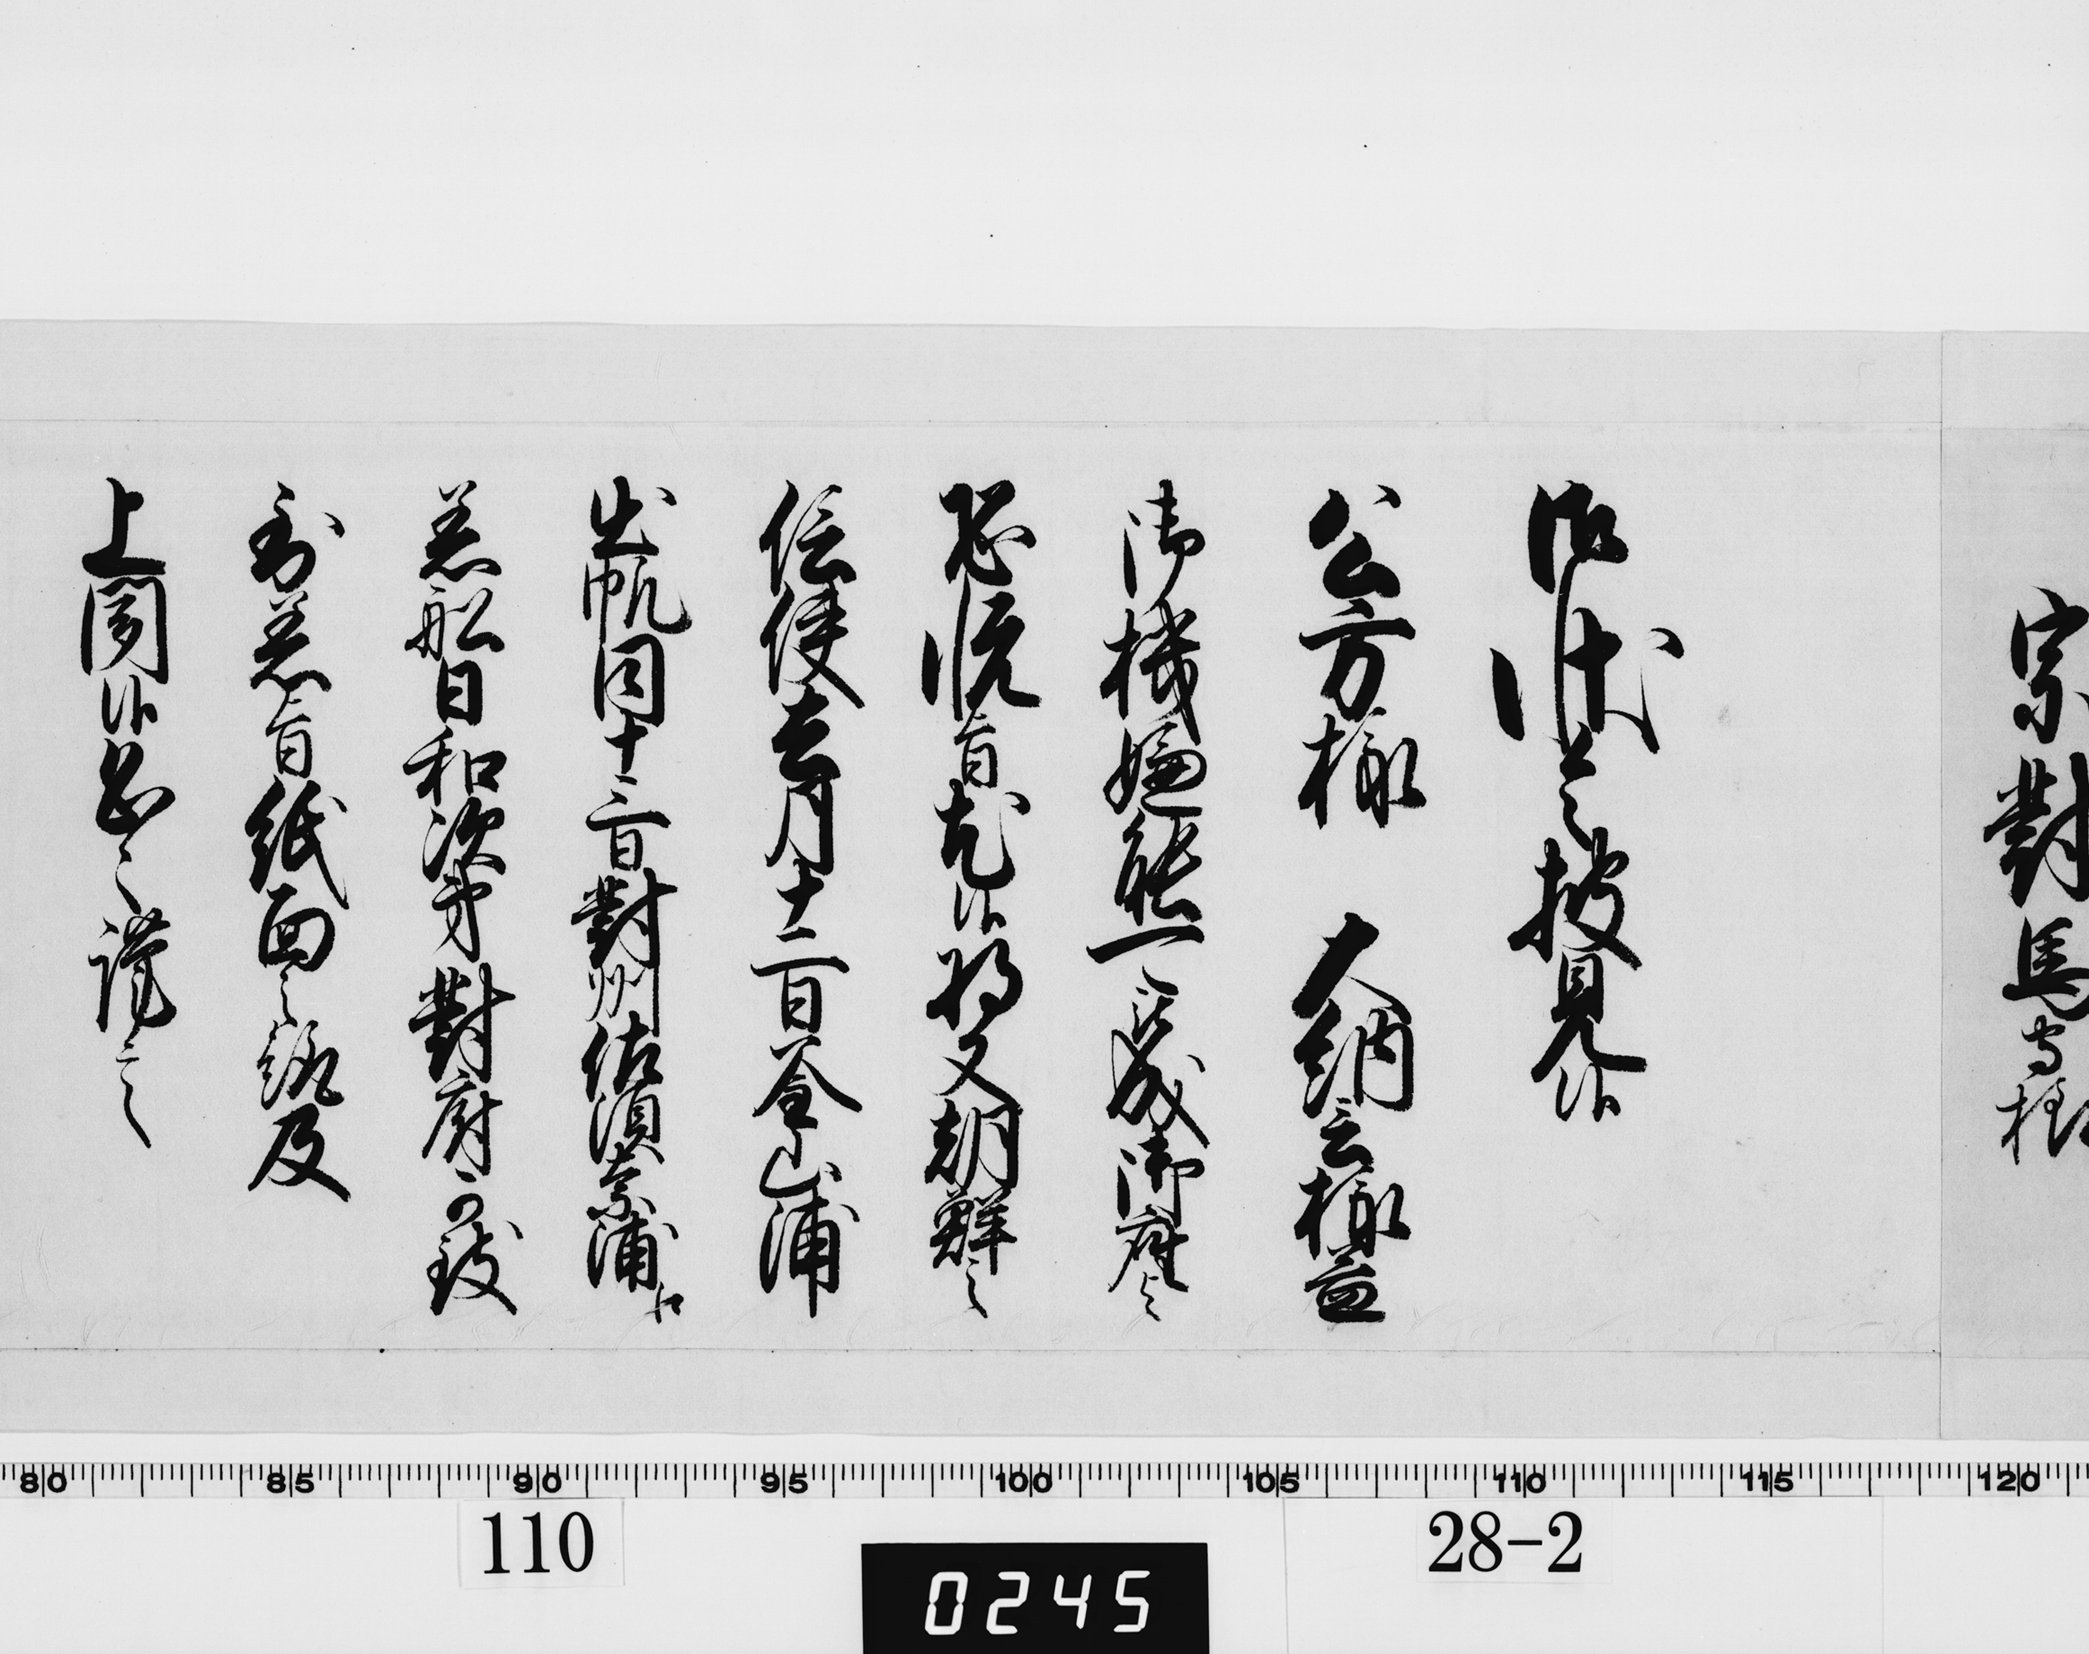 宗對馬守様
御状令披見候
公方様 大納言様益
御機嫌能被成御座之
恐悦旨尤候將又朝鮮之
信使去月十二日釜山浦
出帆同十三日對州佐須奈浦江
着船日和次第對府可致
到着旨紙面之趣及
上聞候恐々謹言
80 85 90 95 100 105 110 115 120
110
28-2
0245